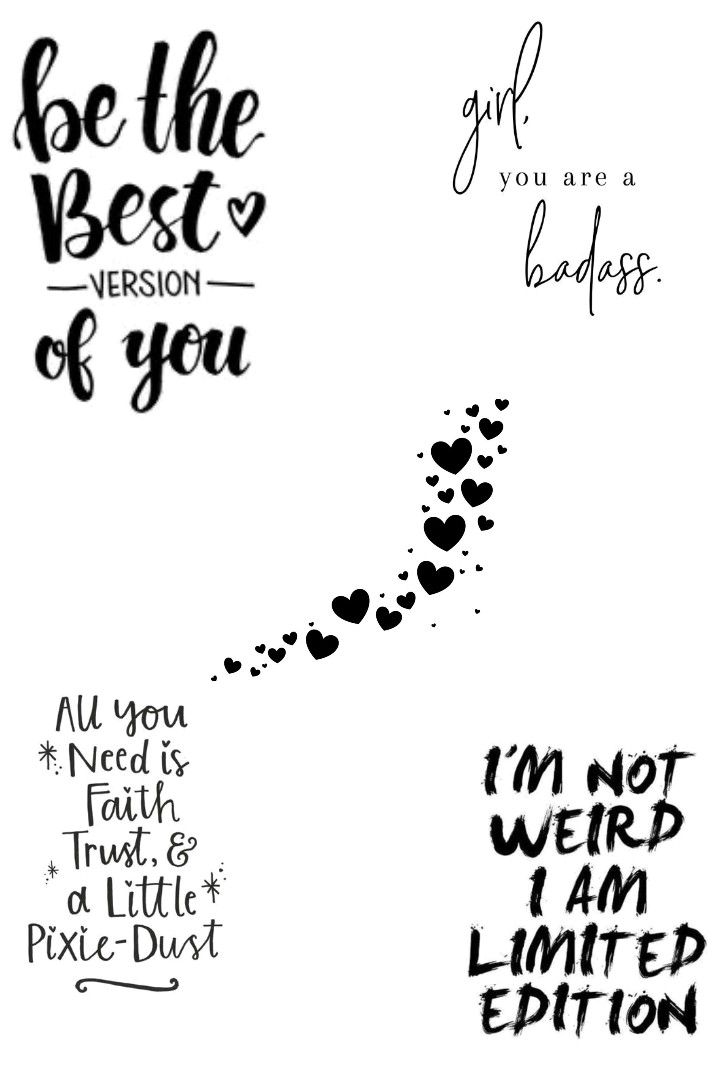 be the
Best
VERSION
of you
girl,
you are a
badass.
All you
Need is
Faith
Trust, &
a Little
Pixie-Dust
I'M NOT
WEIRD
I AM
LIMITED
EDITION